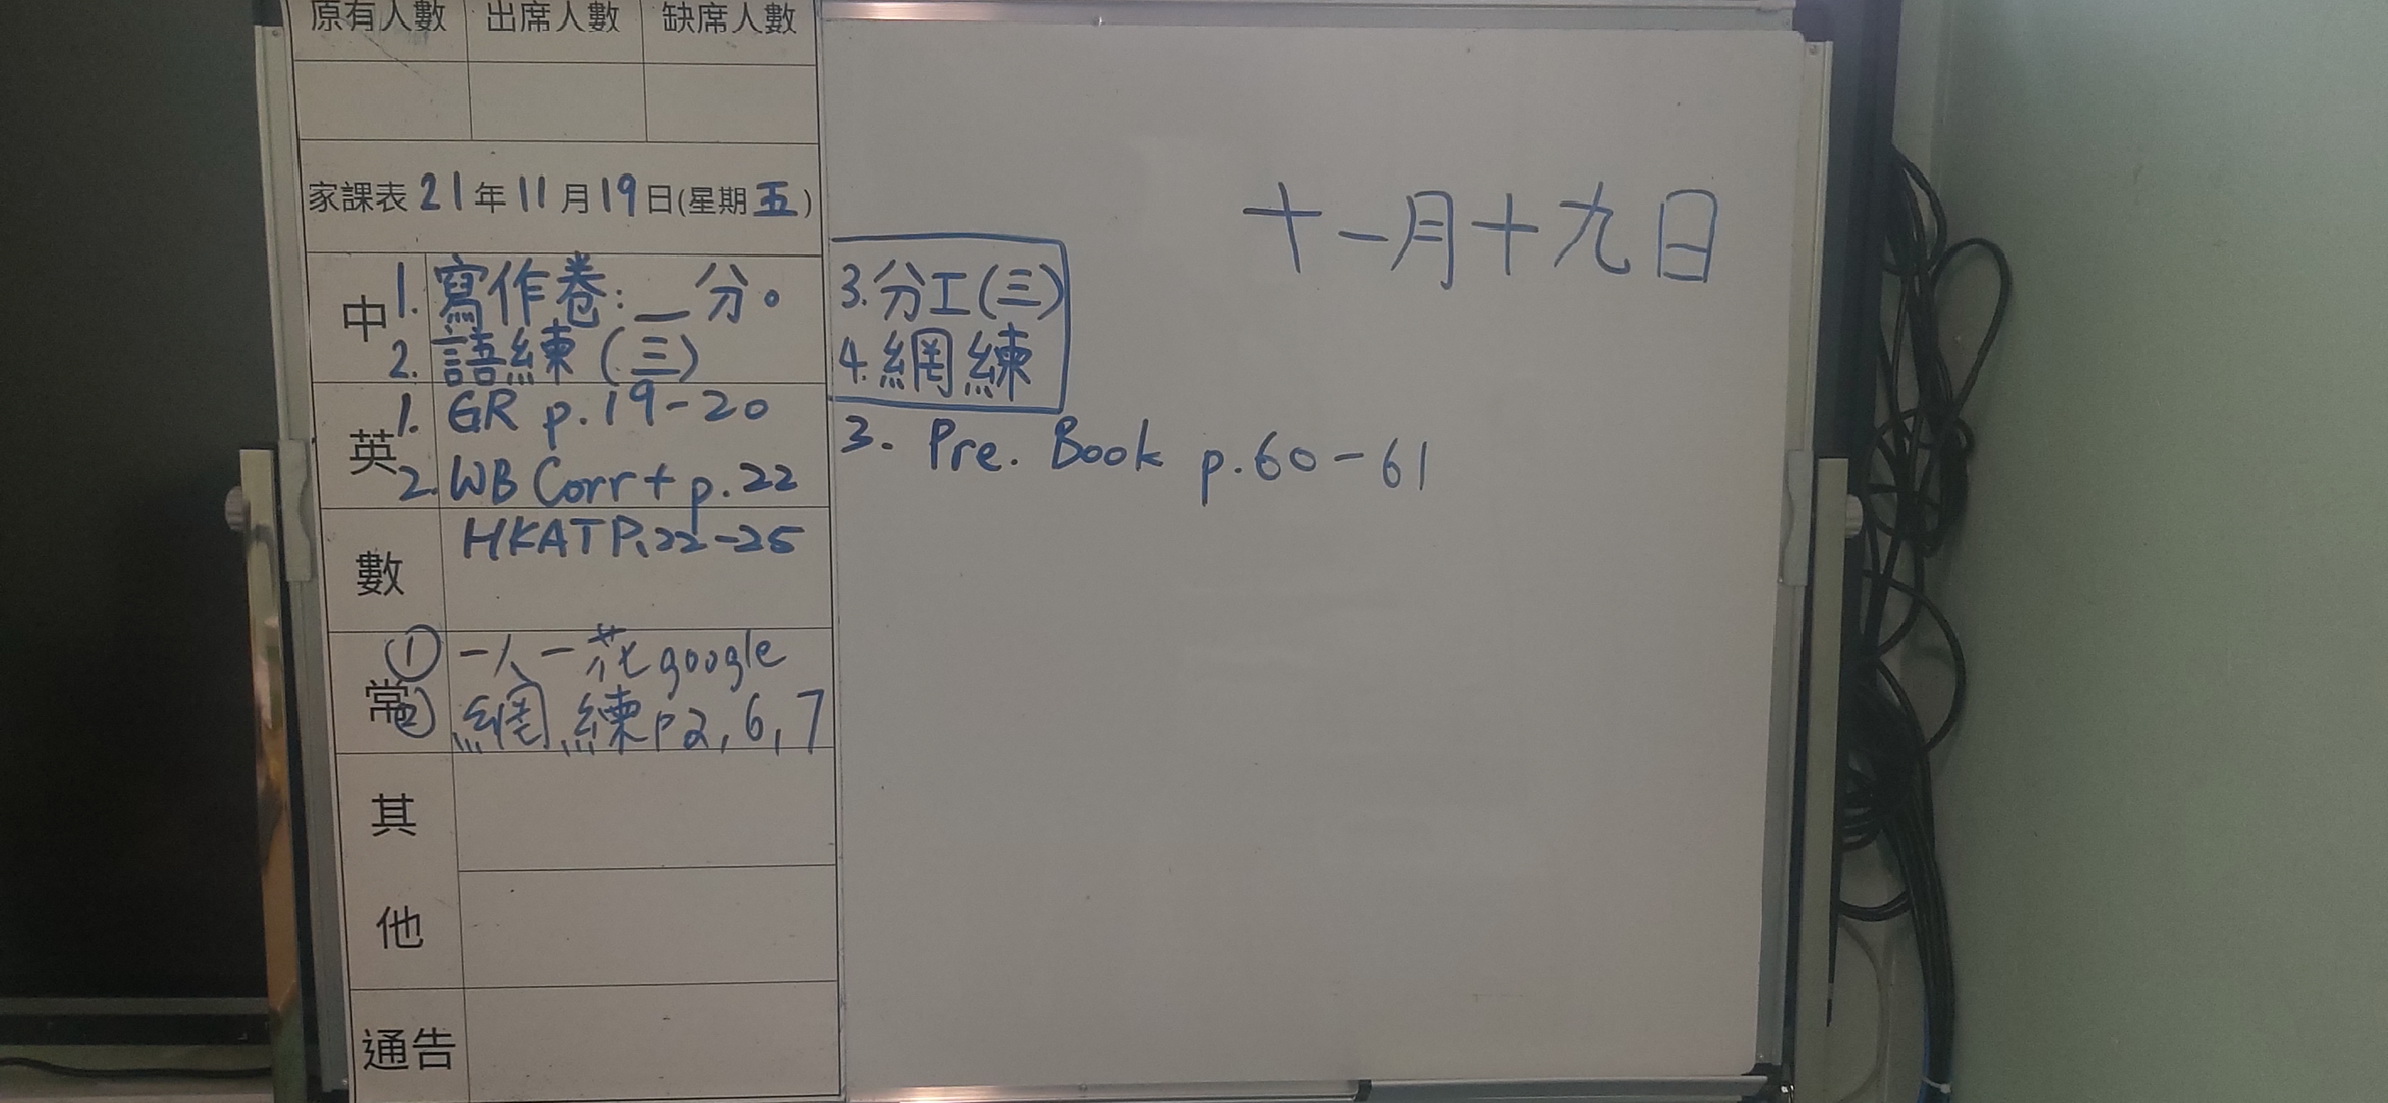 原有人數 出席人數 缺席人數
家課表 21年11月19日(星期五)
十一月十九日
中 1. 寫作卷:__分。
2. 語練(三)
3. 分工(三)
4. 網練
英 1. GR p.19-20
2. WB Corr + p.22
3. Pre. Book p.60-61
數 HKATP.22-25
常 ① 一人一花google
② 網練p2,6,7
其他
通告